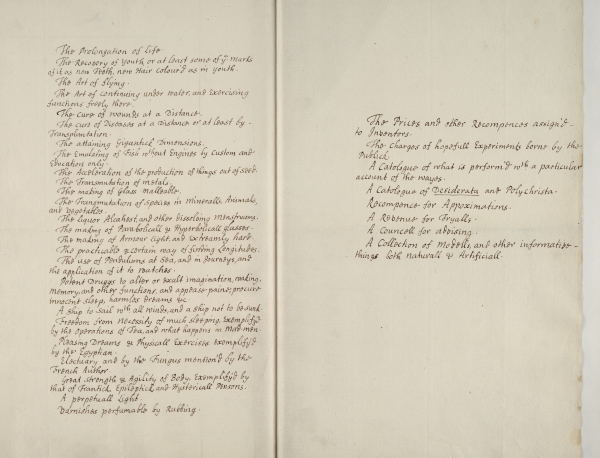 The Prolongation of Life
The Recovery of Youth, or at least some of yᵉ Marks
of it, as new Teeth, new Hair colour'd as in youth
The Art of Flying
The Art of continuing under water, and exercising
functions freely there.
The Cure of Wounds at a Distance.
The Cure of Diseases at a Distance or at least by
Transplantation.
The attaining Gigantick Dimensions.
The Emulating of Fish without Engines by Custom and
Education only.
The Acceleration of the Production of things out of Seed.
The Transmutation of Metals.
The making of Glass malleable.
The Transmutation of Species in Mineralls, Animals,
and Vegetables.
The Liquor Alcahest, and other dissolving Menstruums.
The making of Parabolicall & Hyperbolicall glasses.
The making of Armour light, and extreamly hard.
The practicable & certain way of finding Longitudes.
The use of Pendulums at Sea, and in Journeys, and
the application of it to watches.
Potent Druggs to alter or exalt imagination, waking,
Memory, and other functions, and appease paine, procure
innocent sleep, harmless dreams &c
A Ship to Sail wᵗʰ all winds, and a Ship not to be sunk
Freedom from Necessity of much Sleeping, exemplify'd
by the operations of Tea, and what happens in Mad-men
Pleasing Dreams & Physicall Exercises exemplify'd
by the Egyptian
Electuary and by the Fungus mention'd by the
French Author
Great Strength & Agility of Body, Exemplify'd by
that of Frantick, Epileptick, and Hystericall Persons.
A perpetuall Light.
Varnishes perfumable by Rubbing.
The Prices and other Recompences assign'd
to Inventors.
The Charges of hopefull Experiments borne by the
Publick.
A Catologue of what is perform'd wᵗʰ a particular
account of the wayes.
A Catologue of Desiderata and Polychrista.
Recompence for Approximations.
A Revenue for Tryalls.
A Councell for advising.
A Collection of Modells, and other informative
things both naturall & Artificiall.